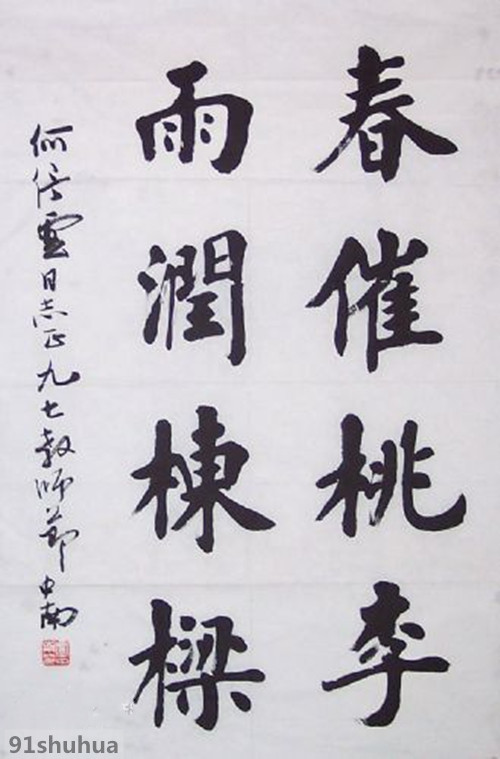 春催桃李
雨潤棟樑
何倍雲同志正九七教師節中南
91shuhua